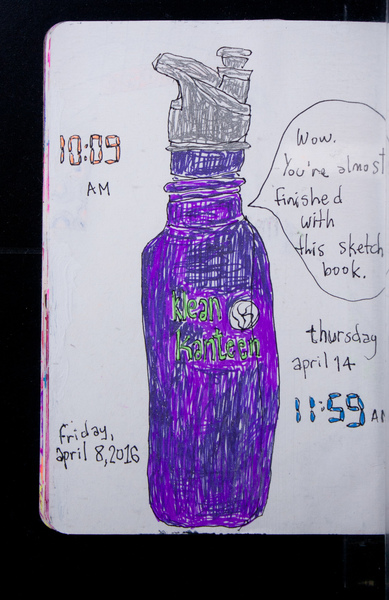 10:09
AM
Wow.
You're almost
finished
with
this sketch
book.
klean
kanteen
thursday
april 14
11:59 AM
friday,
april 8, 2016